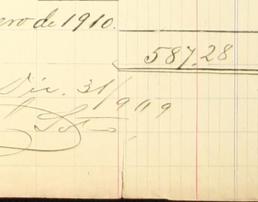 ero de 1910.
587.28
Dic. 31/1909